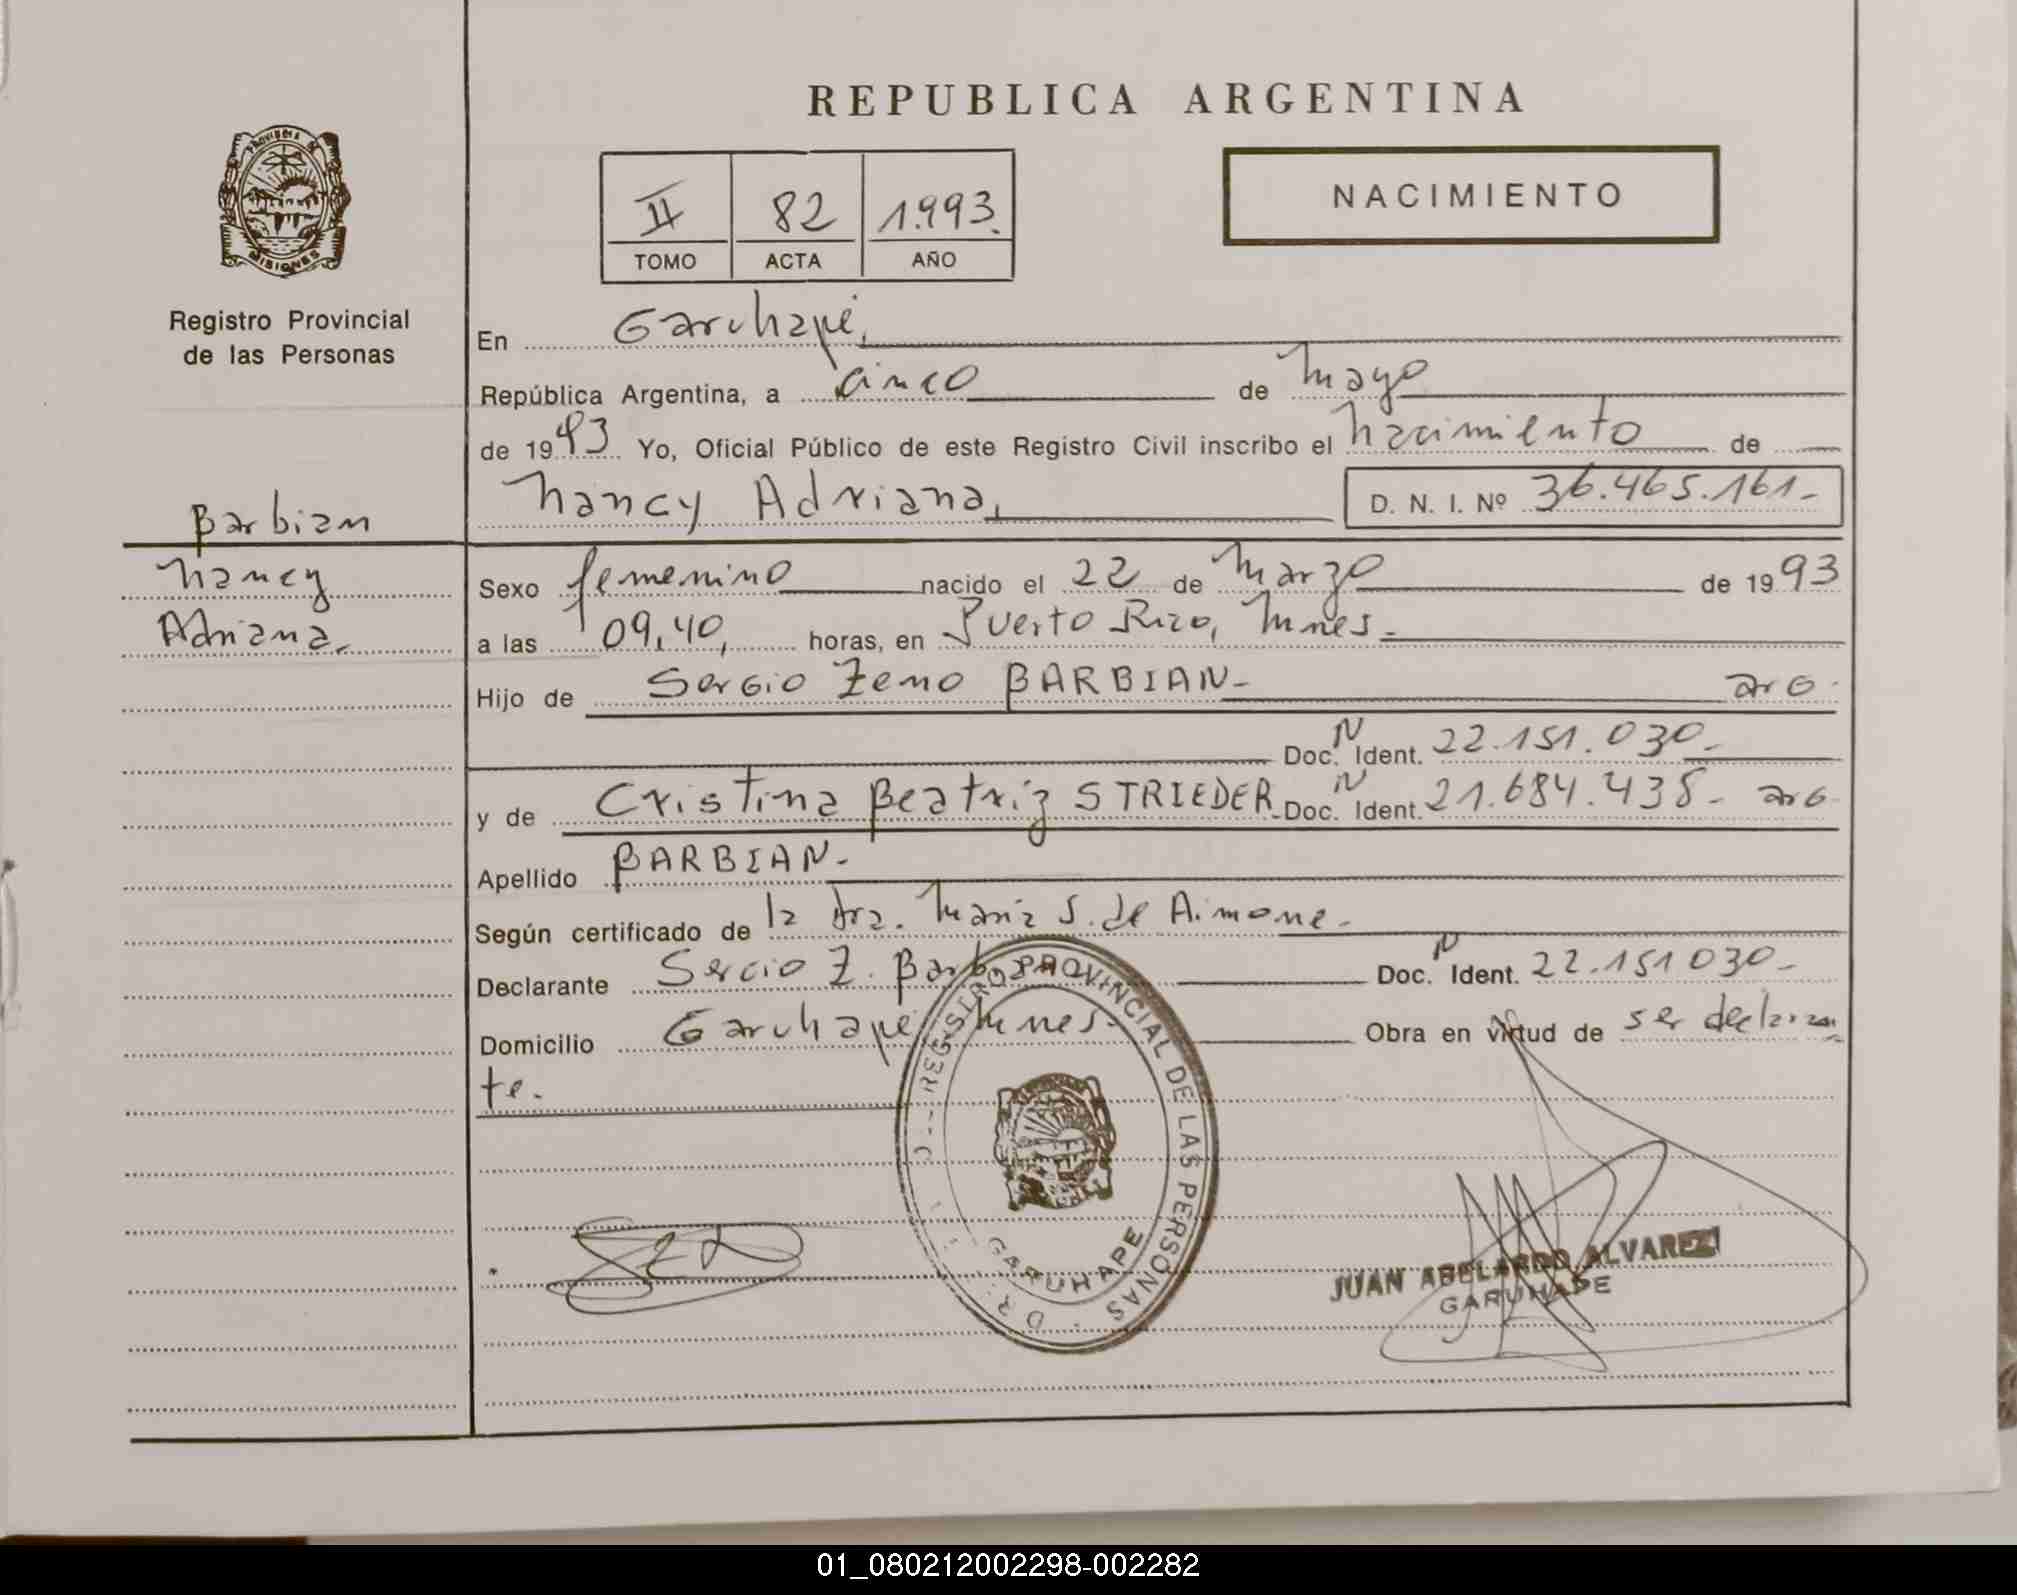 REPUBLICA ARGENTINA
PROVINCIA DE
MISIONES
Registro Provincial
de las Personas
II 82 1.993.
TOMO ACTA AÑO
NACIMIENTO
En Garuhapé,
República Argentina, a cinco de Mayo
de 1993 Yo, Oficial Público de este Registro Civil inscribo el Nacimiento de
Nancy Adriana, D. N. I. Nº 36.465.161-
Barbian
Nancy
Adriana.
Sexo femenino nacido el 22 de Marzo de 1993
a las 09,40, horas, en Puerto Rico, Mnes.-
Hijo de Sergio Zeno BARBIAN- arg.
Doc. N Ident. 22.151.030-
y de Cristina Beatriz STRIEDER Doc. N Ident. 21.684.438- arg.
Apellido BARBIAN-
Según certificado de la Dra. Maria S. de Aimone.-
Declarante Sergio Z. Barbian Doc. N Ident. 22.151030-
Domicilio Garuhapé Mnes.- Obra en virtud de ser declaran
te.
REGISTRO PROVINCIAL DE LAS PERSONAS
GARUHAPE
JUAN ABELARDO ALVAREZ
GARUHAPE
01_080212002298-002282